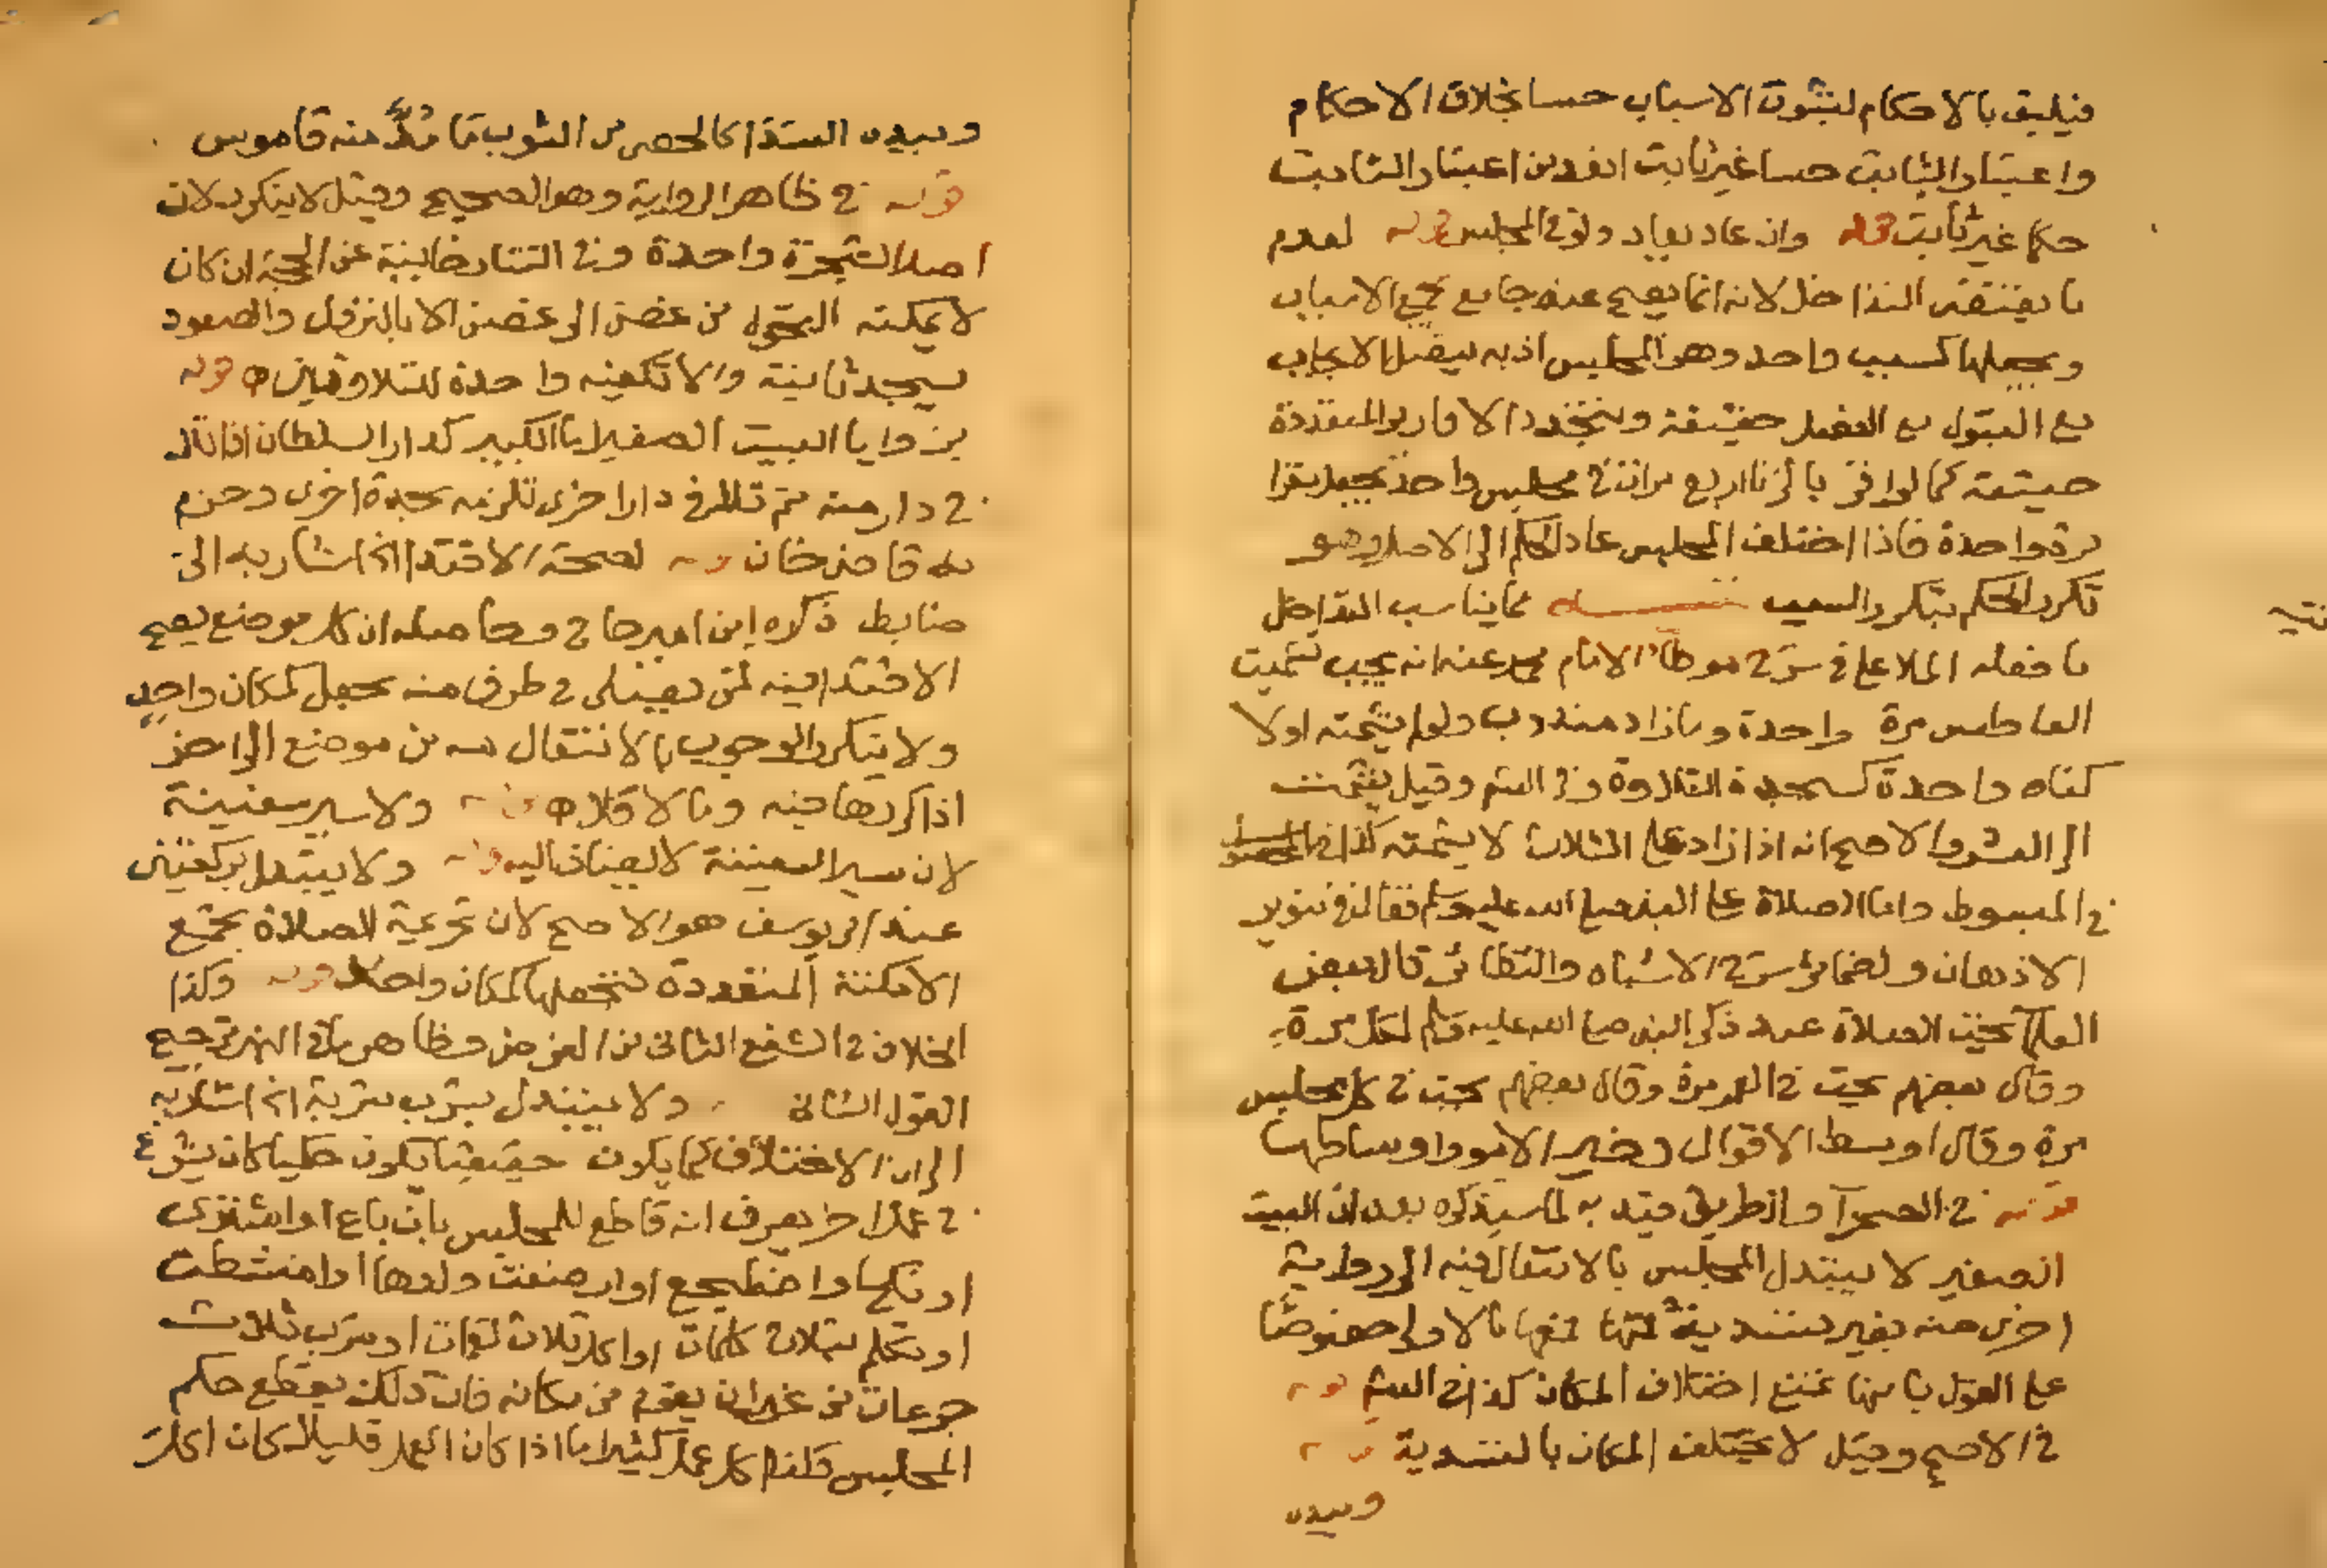 فيليق بالاحكام لثبوت الاسباب حسا بخلاف الاحكام
واعتبار الثابت حسا غير ثابت ابعد من اعتبار الثابت
حكما غير ثابت قوله وان عاد يعاد ولو في المجلس قوله لعدم
ما يقتضى التداخل لانه انما يصح عند جامع يجمع الاسباب
ويجعلها كسبب واحد وهو المجلس اذ به يتصل الايجاب
مع القبول مع الفصل حقيقة ويتحد الاقارير المتعددة
حقيقة كما لو اقر بالزنا اربع مرات في مجلس واحد يجعل مقرا
مرة واحدة فاذا اختلف المجلس عاد الحكم الى الاصل وهو
تكرر الحكم بتكرر السبب تنبيه مما يناسب التداخل
ما نقله الملا على في شرح موطا الامام محمد عنه انه يجب تشميت
العاطس مرة واحدة وما زاد مندوب ولو لم يشمته اولا
كفاه واحدة كسجدة التلاوة وفي وقيل يشمت
الى العشر والاصح انه اذا زاد على الثلاث لا يشمته كذا في
في المبسوط واما الصلاة على النبي صلى الله عليه وسلم فقال في تنوير
الاذهان والضمائر شرح الاشباه والنظائر قال بعض
العلماء تجب الصلاة عند ذكر النبي صلى الله عليه وسلم لكل مرة
وقال بعضهم تجب في العمر مرة وقال بعضهم تجب في كل مجلس
مرة وقال اوسط الاقوال وخير الامور اوساطها
قوله في الصحرآ والطريق قيد به لما سيذكره بعد ان البيت
الصغير لا يتبدل المجلس بالانتقال فيه الى زاوية
اخرى منه بغير تسدية
على القول بانها تمنع اختلاف المكان كذا في قوله
في الاصح وقيل لا يختلف المكان بالتسدية قوله
وسيده
وسيده السدا كالحصى من الثوب ما مُدَّ منه قاموس
قوله في ظاهر الرواية وهو الصحيح وقيل لا يتكرر لان
اصل الشجرة واحدة وفي التتارخانية عن الحجة ان كان
لا يمكنه التحول من غصن الى غصن الا بالنزول والصعود
يسجد ثانية والا تكفيه واحدة للتلاوتين قوله
من زوايا البيت الصغير اما الكبير كدار السلطان اذا تلا
في دار منه ثم تلا في دار اخرى تلزمه سجدة اخرى وجزم
به قاضى خان قوله لصحة الاقتدا الخ اشار به الى
ضابط ذكره ابن امير حاج وحاصله ان كل موضع يصح
الاقتدا فيه لمن يصلى في طرف منه يجعل كمكان واحد
ولا يتكرر الوجوب بالانتقال منه من موضع الى اخر
اذا كررها فيه وما لا فلا قوله ولا سير سفينة
لان سير السفينة لا يضاف اليه قوله ولا يتبدل بركعتين
عند ابى يوسف هو الاصح لان تحريمة الصلاة تجمع
الامكنة المتعددة فتجعلها كمكان واحد قوله وكذا
الخلاف في الشفع الثانى من الفرض وظاهر ما في النهر ترجيح
القول الثانى ولا يتبدل بشرب شربة الخ اشار به
الى ان الاختلاف كما يكون حقيقيا يكون حكميا كان شرع
في عمل اخر يعرف انه قاطع للمجلس بان باع او اشترى
او نكح او اضطجع او ارضعت ولدها او امتشطت
او تكلم بثلاث كلمات او اكل ثلاث لقمات او شرب ثلاث
جرعات من غير ان يقوم من مكانه فان ذلك يقطع حكم
المجلس وكذا كل عمل كثير اما اذا كان العمل قليلا كان اكل